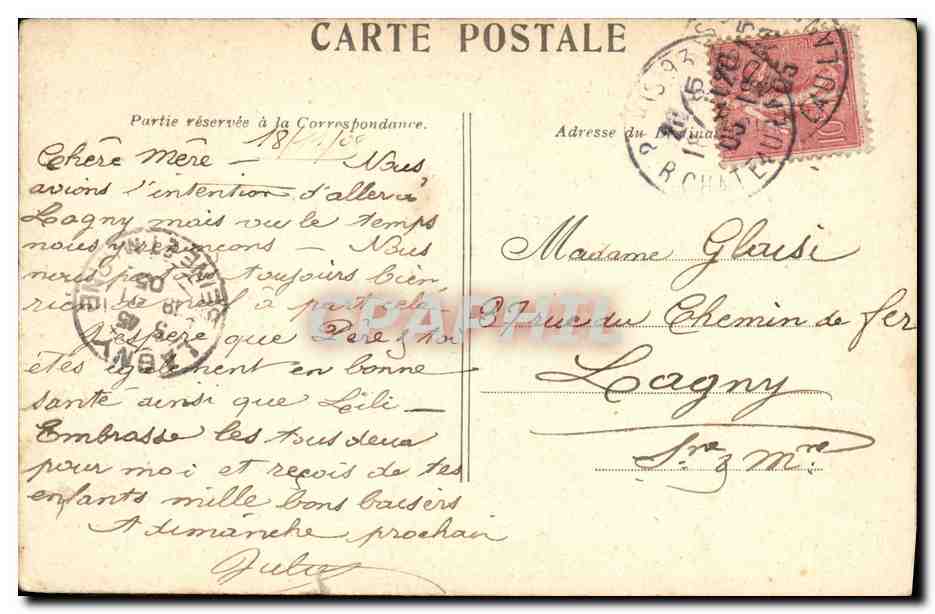 CARTE POSTALE
Partie réservée à la Correspondance.
Adresse du
18/11/05
Chère Mère – Nous
avions l'intention d'aller à
Lagny mais vu le temps
nous y renonçons – Nous
nous toujours bien,
rien à part cela
J'espère que Père & toi
êtes également en bonne
santé ainsi que Lili –
Embrasse les tous deux
pour moi et reçois de tes
enfants mille bons baisers
A dimanche prochain
Madame Glaisi
37 rue du Chemin de fer
Lagny
Sne & Mne
R. CHATEAUDUN
LAGNY
SEINE ET MARNE
CPAPHIL